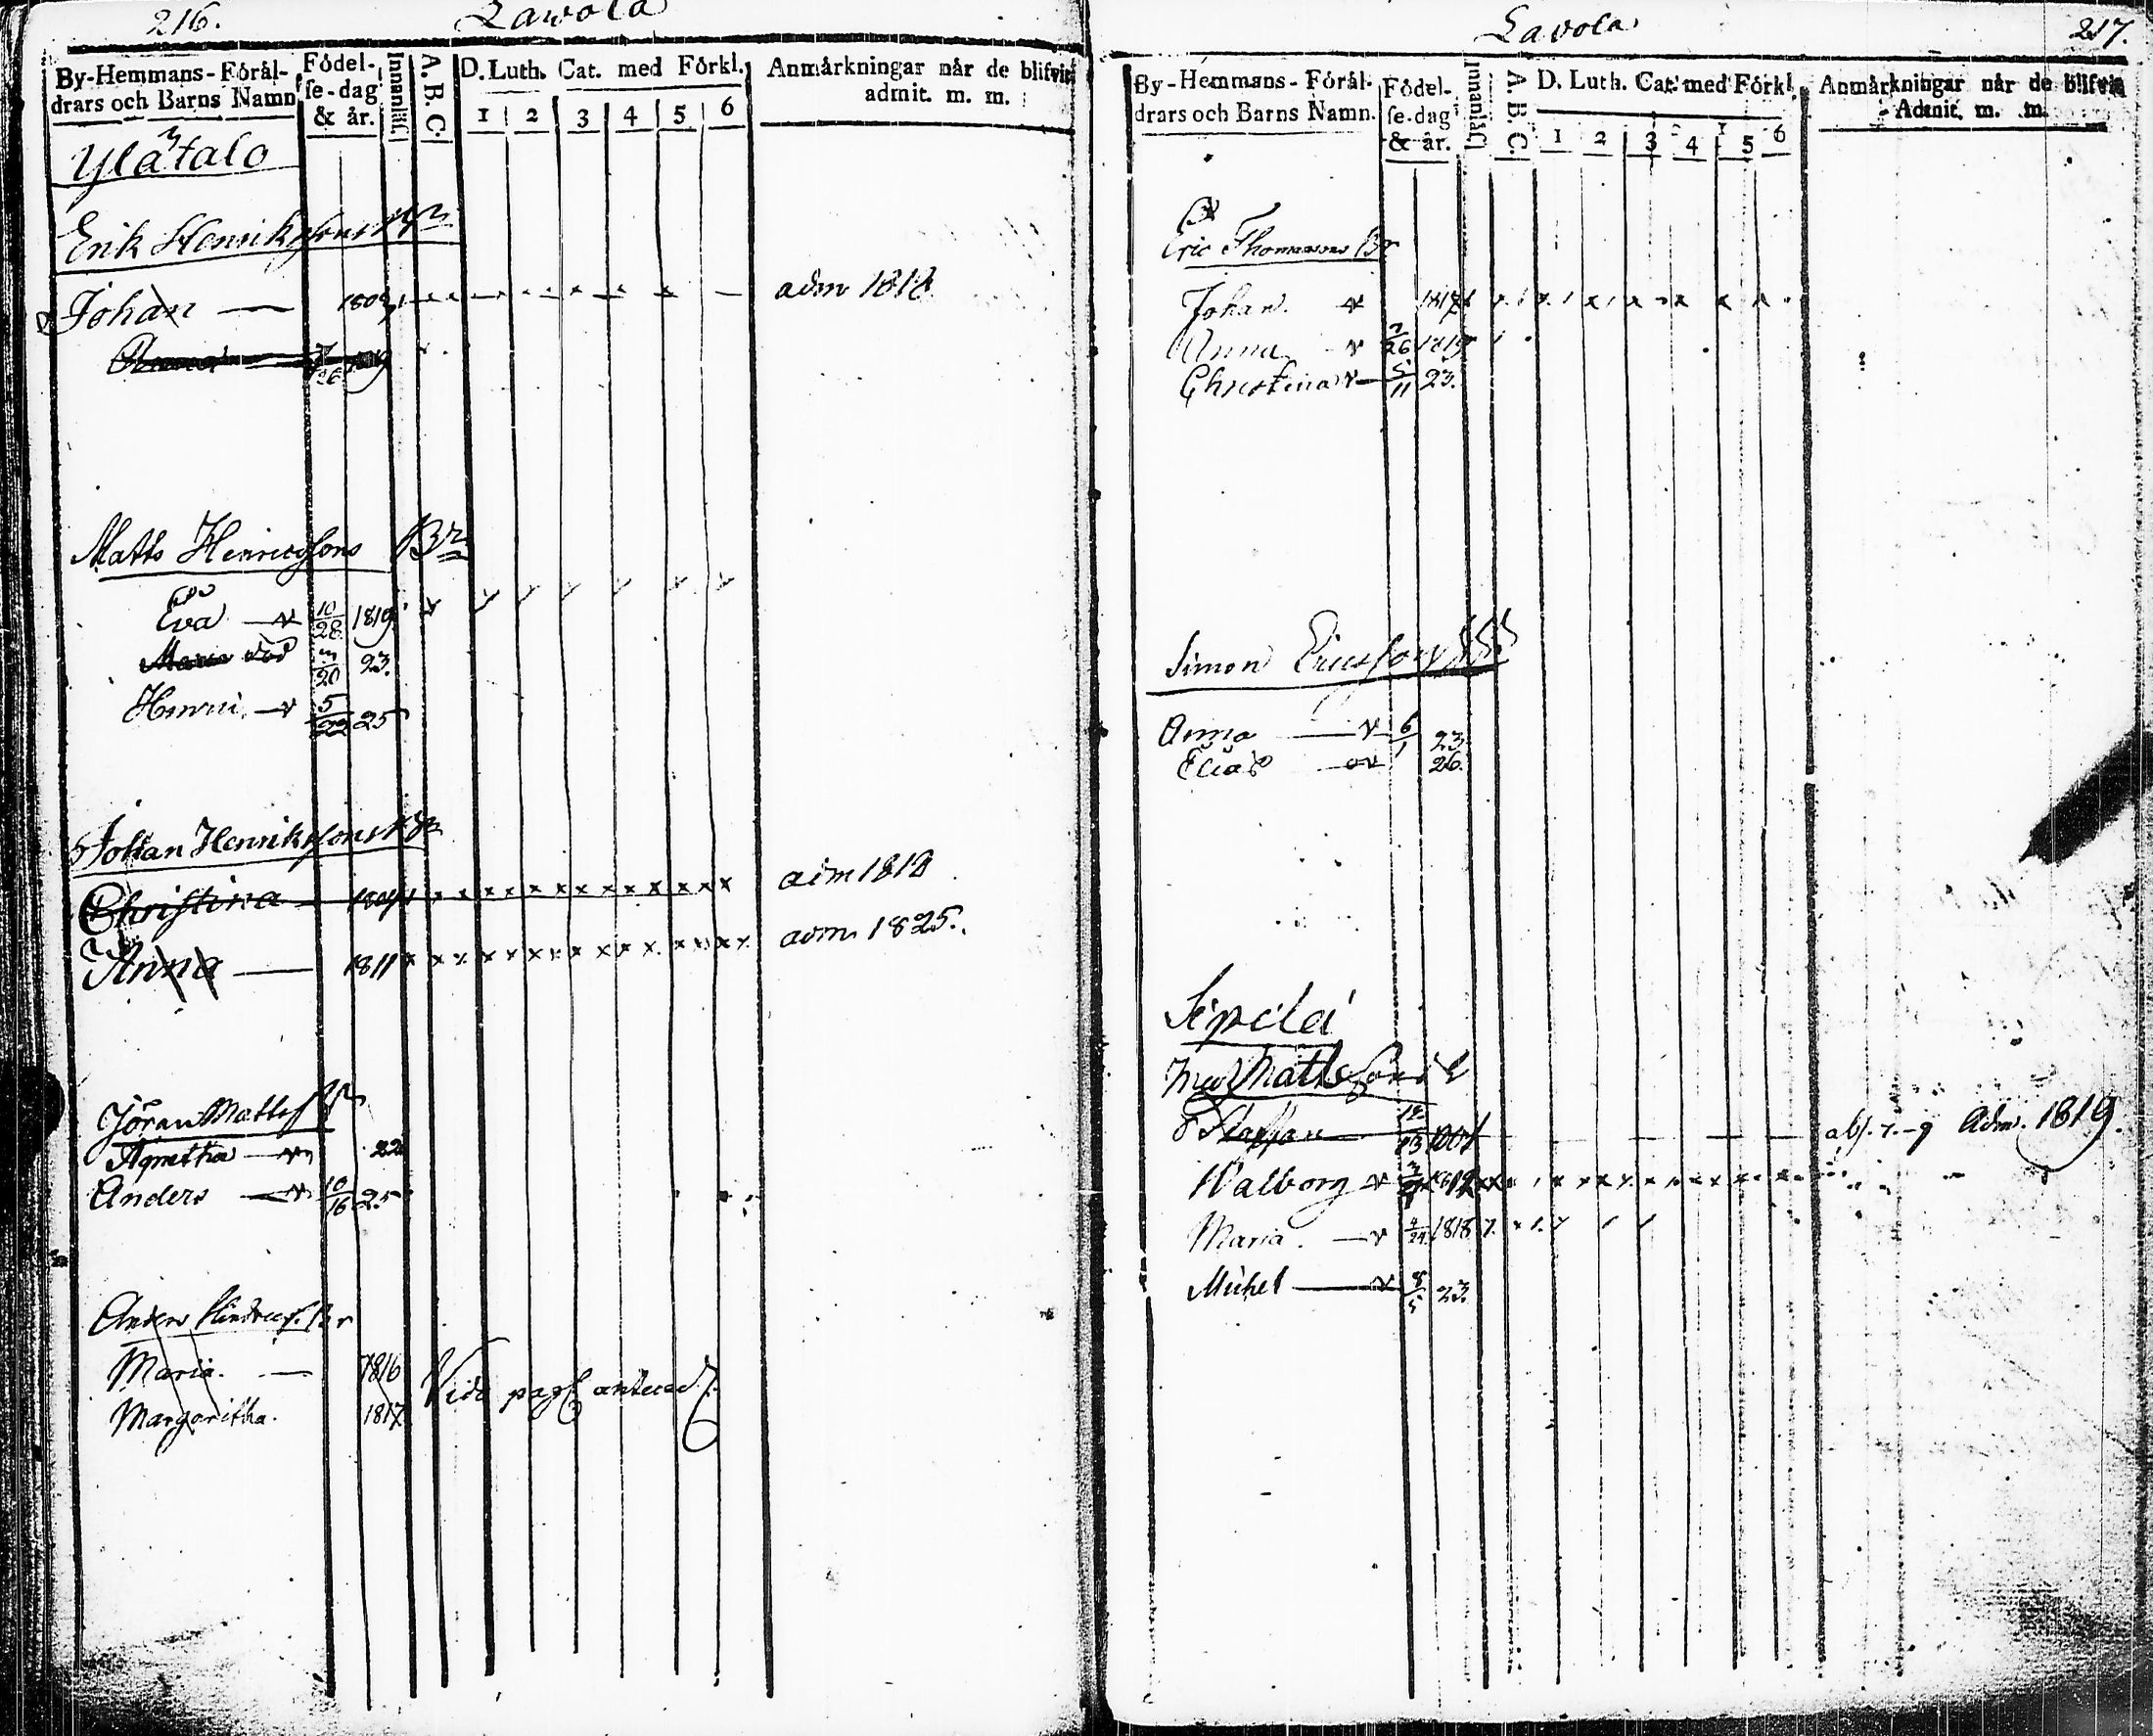 216.
Lavola
By-Hemmans-Föräl-
drars och Barns Namn
Födel-
se-dag
& år.
Innanläs.
A. B. C.
D. Luth. Cat. med Förkl.
1 2 3 4 5 6
Anmärkningar när de blifvit
admit. m. m.
Ylätalo
Erik Henrikssons
Johan — 1803 adm 1818
Anna 26
Matts Henricssons Br
Eva 10/28 1819
Maria död 20 23.
Henric 5/22 25
Johan Henrikssons
Christina adm 1818
Anna — 1811 adm 1825.
Jöran Matts
Agnetha 22
Anders 10/16 25
Anders Hindrics. Br
Maria. — 1816
Margaritha. 1817
Vide pag anteced
217.
Lavola
By-Hemmans-Föräl-
drars och Barns Namn.
Födel-
se-dag
& år.
Innanläs.
A. B. C.
D. Luth. Cat. med Förkl.
1 2 3 4 5 6
Anmärkningar när de blifvit
Admit. m. m.
Eric Thomassons Br
Johan. 1817
Anna 26 1819
Christina 5/11 23.
Simon Ericssons
Anna 6/1 23
Elias 26.
Sipilä
Mattssons
Staffan Adm. 1819.
Walborg 1812
Maria. 4/24 1818
Michel 8/5 23.